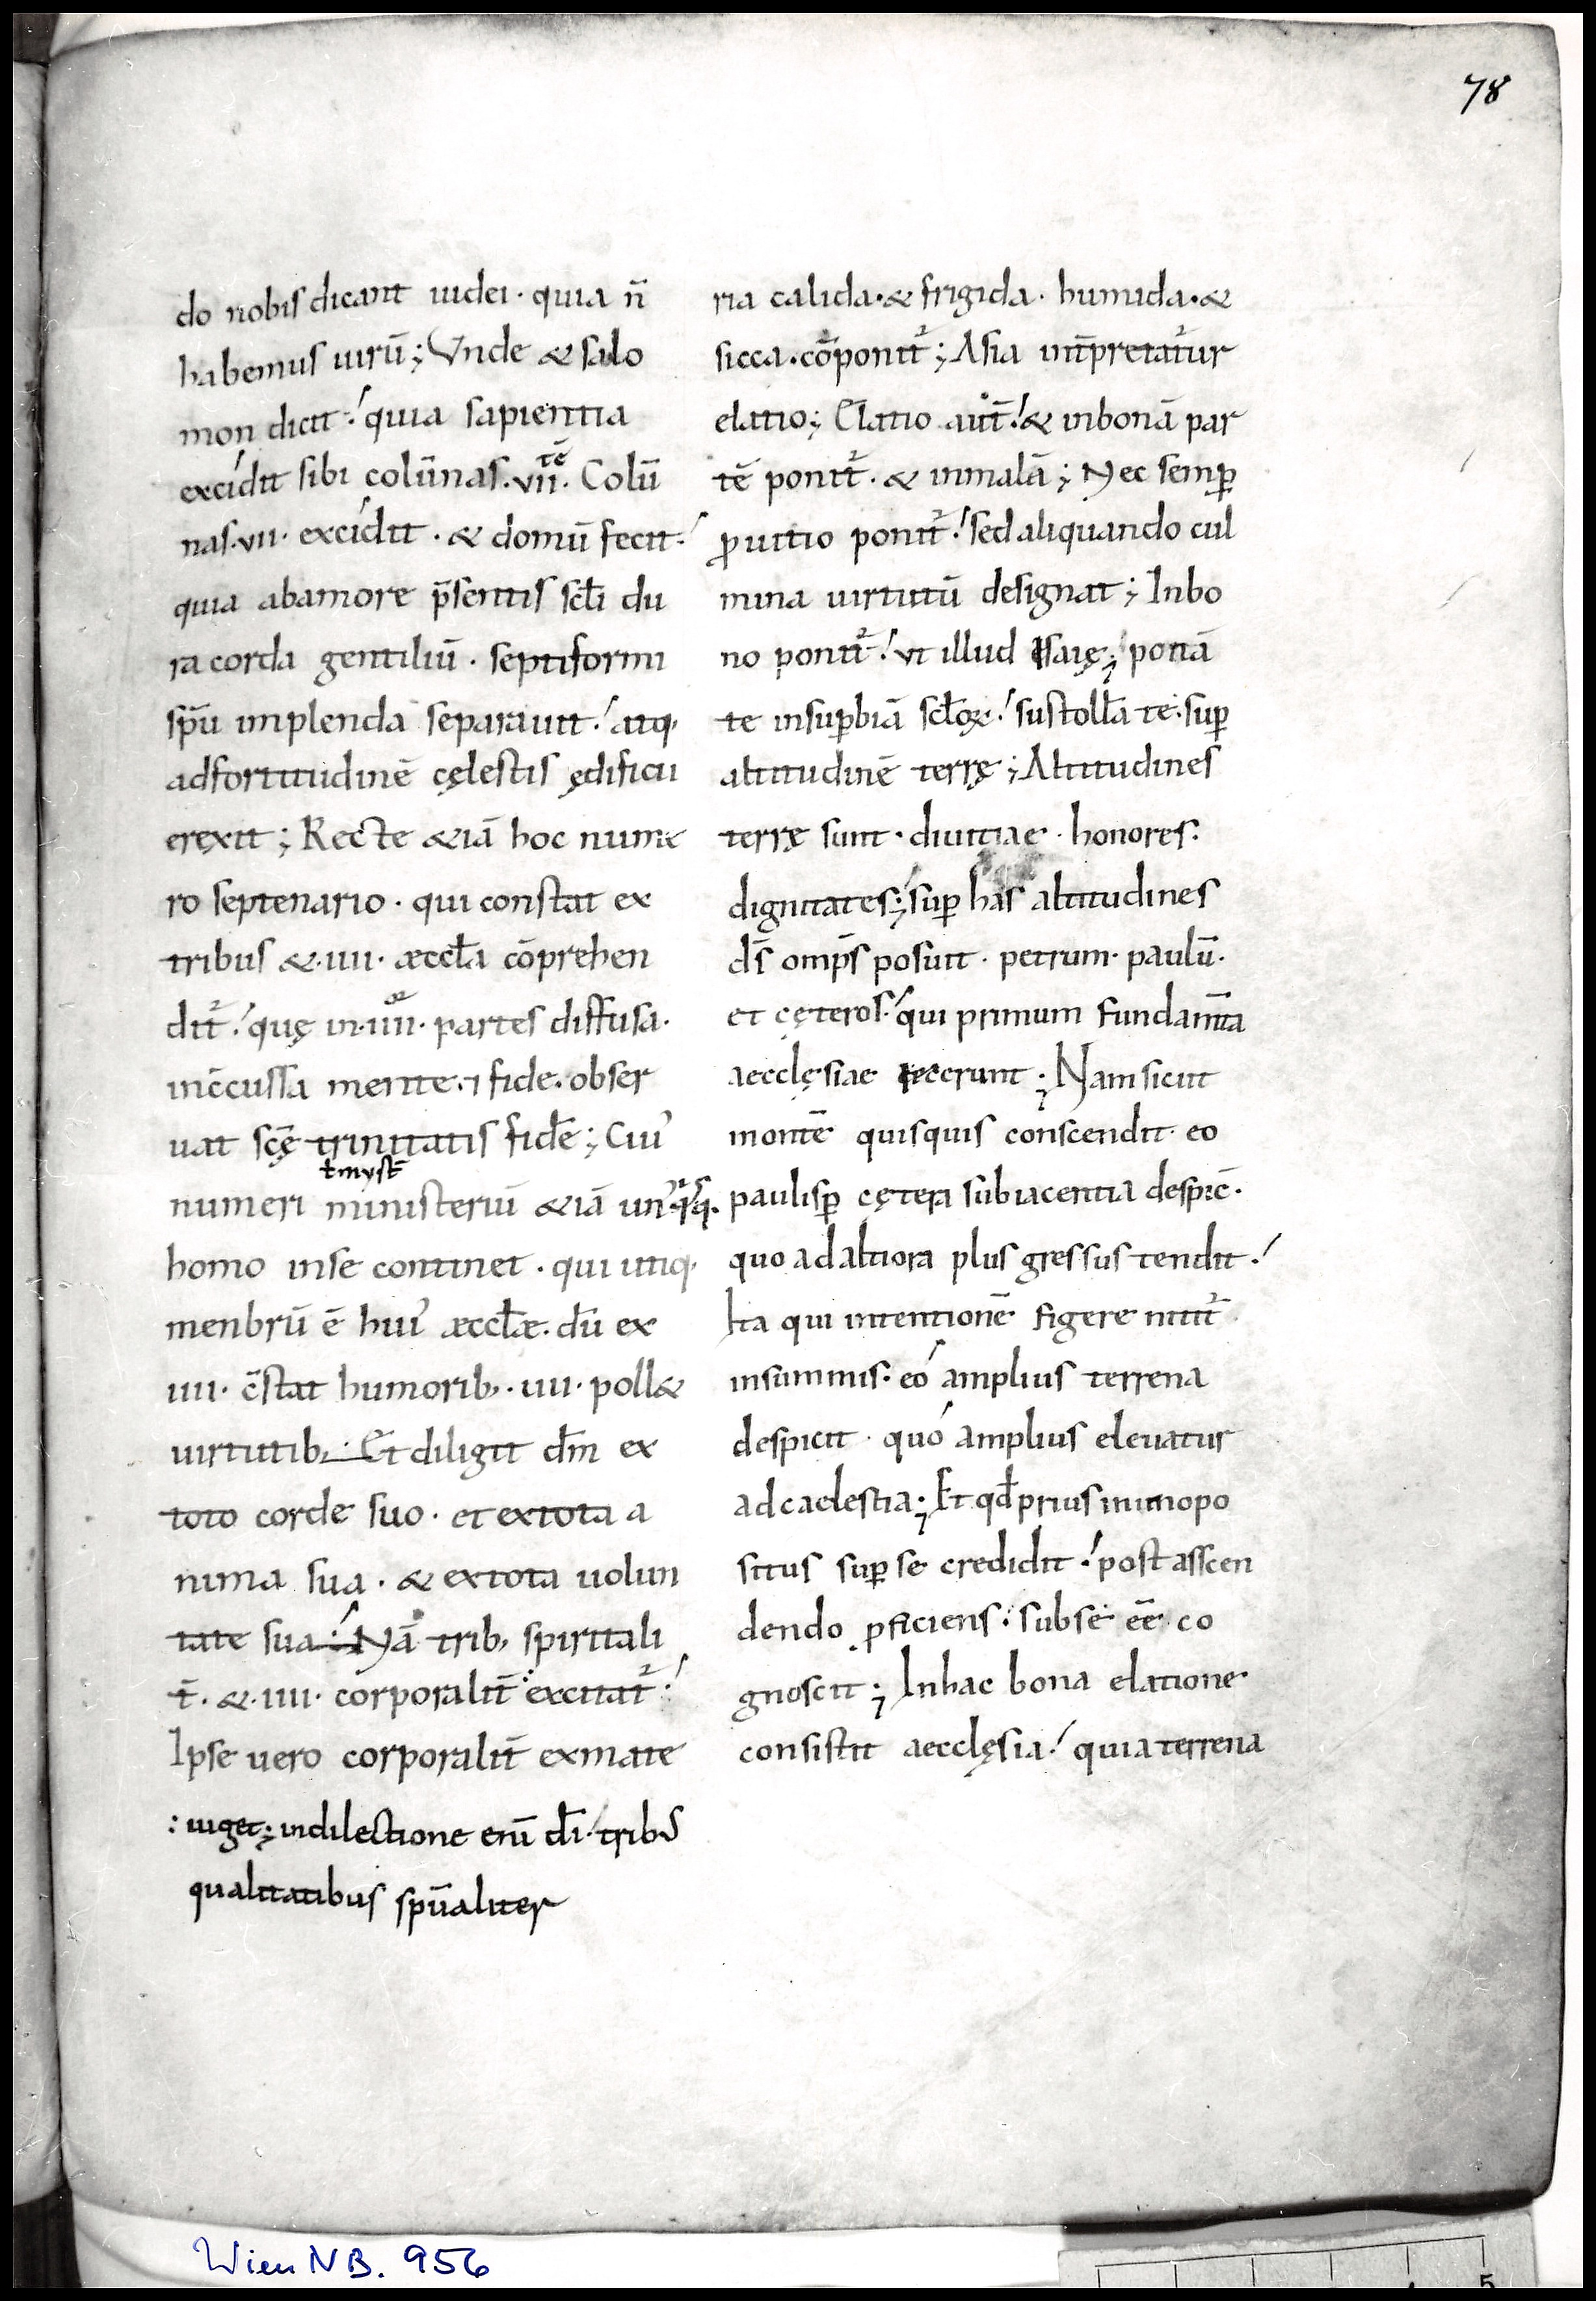 78
do nobis dicant iudei · quia n̄
habemus uirū; Vnde & salo
mon dicit · quia sapientia
tē
excídit sibi colūnas · vii · Colū
nas · vii · excídit · & domū fecit ·
quia abamore p̄sentis scl̄i du
ra corda gentiliū · septiformi
sp̄u implenda separauit · atq·
adfortitudinē cęlestis ędificii
erexit; Recte &iā hoc nume
ro septenario · qui constat ex
tribus & · iiii · æccl̄a cōprehen
dit̄ · quę in · iiii · partes diffusa ·
incc̄ussa mente · ⁊ fide · obser
uat scę̄ trinitatis fidē; Cui᾽
ł myst̄
numeri ministeriū &iā un᾽q̇sq·
homo inse continet · qui utiq·
menbrū ē hui᾽ æccl̄æ · dū ex
iiii · c̄stat humorib; · iiii · poll&
uirtutib; · Et diligit dm̄ ex
toto corde suo · et extota a
nima sua · & extota uolun
tate sua · Nā trib; spiritali
t̄ · & · iiii · corporalit̄ excitat̄ ·
Ipse uero corporalit̄ exmate
: uiget; indilectione enī dī · tribus
qualitatibus spūaliter
ria calida · & frigida · humida · &
sicca · cōponit̄; Asia int̄pretatur
elatio; Elatio aut̄ · & inbonā par
tē ponit̄ · & inmalā; Nec semꝑ
ꝓ uitio ponit̄ · sed aliquando cul
mina uirtutū designat; Inbo
no ponit̄ · ut illud Isaię; ponā
te insuꝑbiā scl̄oꝝ · sustollā te · suꝑ
altitudinē terrę; Altitudines
terrę sunt · diuitiae · honores ·
dignitates; suꝑ has altitudines
ds̄ omp̄s posuit · petrum · paulū ·
et cęteros · qui primum fundam̄ta
aecclęsiae iecerunt; Nam sicut
montē quisquis conscendit eo
paulisꝑ cętera subiacentia despic̄ ·
quo ad altiora plus gressus tendit ·
Ita qui intentionē figere nitit̄
insummis · eó amplius terrena
despicit · quó amplius eleuatur
ad caelestia; Et qđ prius inimo po
situs suꝑ se credidit · post asscen
dendo ꝓficiens · subse eē co
gnoscit; Inhac bona elatione
consistit aecclęsia · quia terrena
Wien NB. 956
5